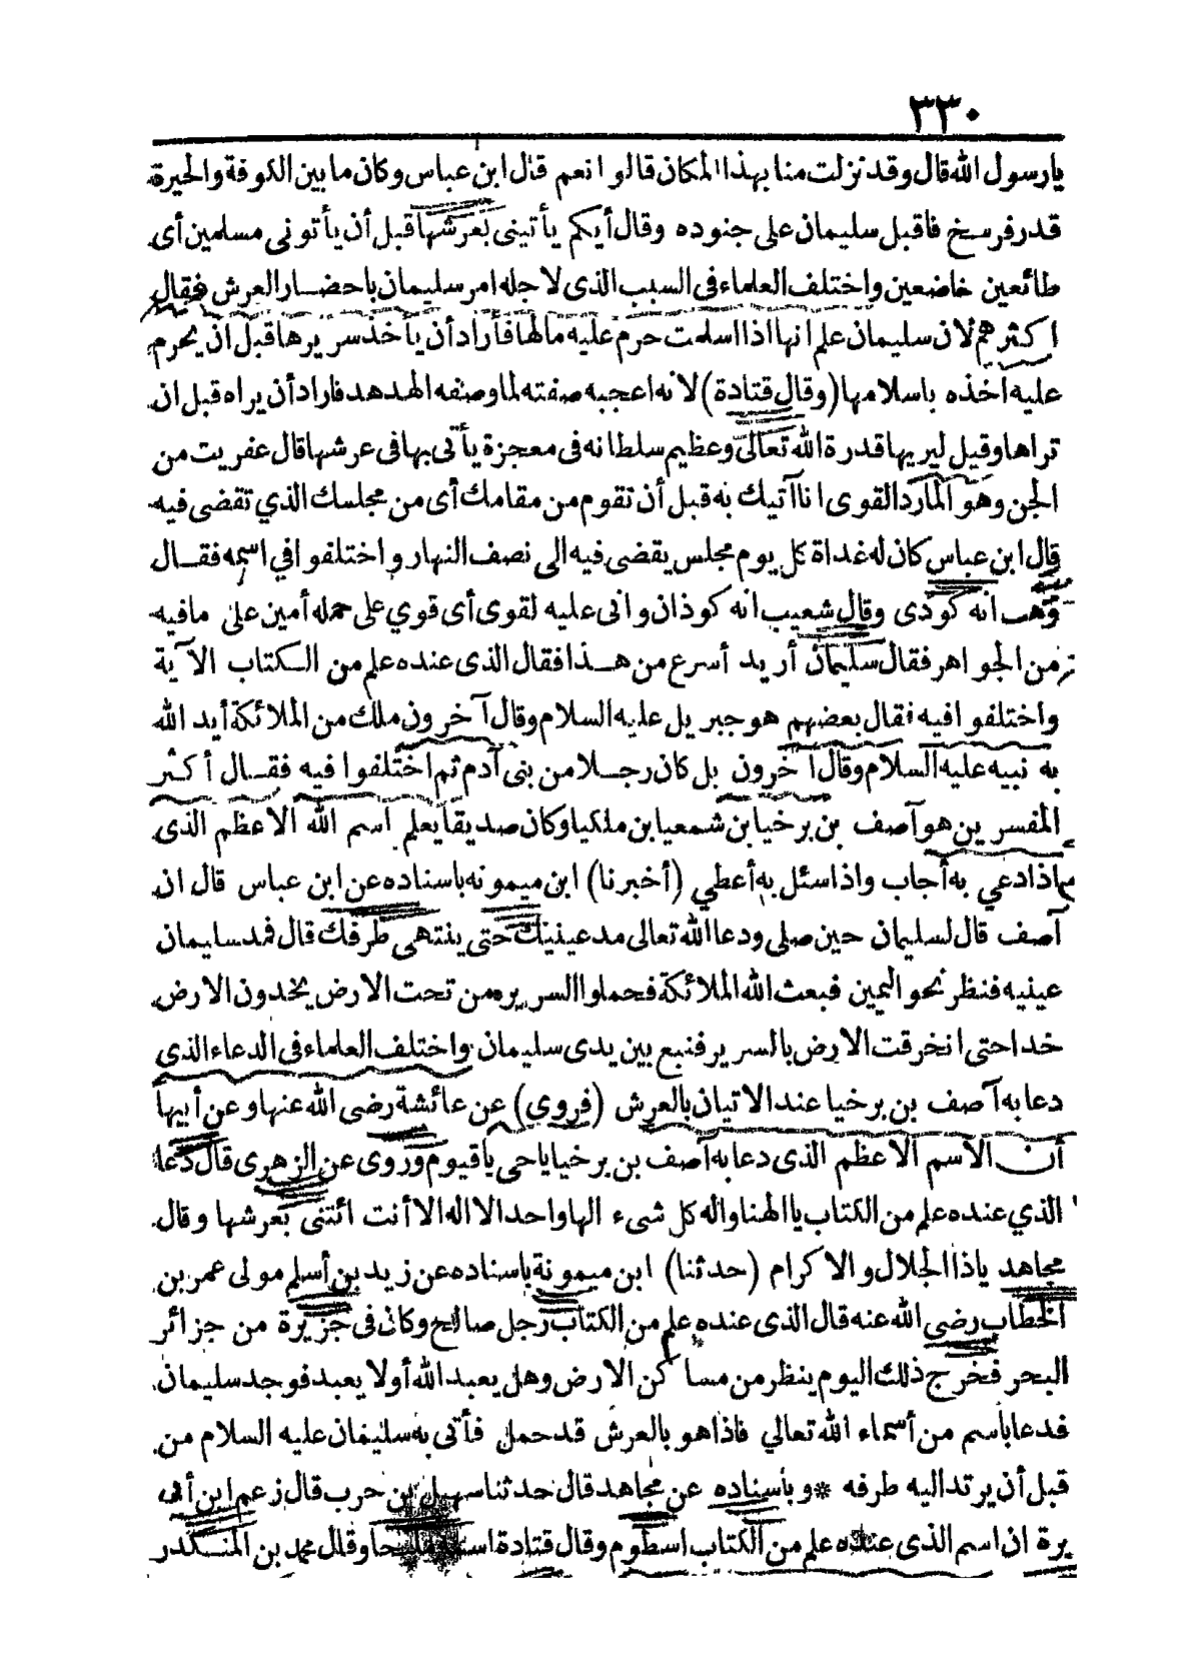 ٣٣٠
يارسول الله قال وقد نزلت منا بهذا المكان قالوا نعم قال ابن عباس وكان ما بين الكوفة والحيرة
قدر فرسخ فاقبل سليمان على جنوده وقال أيكم يأتيني بعرشها قبل أن يأتوني مسلمين أي
طائعين خاضعين واختلف العلماء في السبب الذي لاجله امر سليمان باحضار العرش فقال
اكثرهم لان سليمان علم انها اذا اسلمت حرم عليه مالها فأراد أن يأخذ سريرها قبل ان يحرم
عليه اخذه باسلامها (وقال قتادة) لانه اعجبه صفته لما وصفه الهدهد فاراد أن يراه قبل ان
تراها وقيل ليريها قدرة الله تعالى وعظيم سلطانه في معجزة يأتي بها في عرشها قال عفريت من
الجن وهو المارد القوى انا آتيك به قبل أن تقوم من مقامك أي من مجلسك الذي تقضى فيه
قال ابن عباس كان له غداة كل يوم مجلس يقضى فيه الى نصف النهار واختلفوا في اسمه فقال
وهب انه كودى وقال شعيب انه كوذان واني عليه لقوى أي قوي على حمله أمين على مافيه
من الجواهر فقال سليمان أريد أسرع من هذا فقال الذي عنده علم من الكتاب الآية
واختلفوا فيه فقال بعضهم هو جبريل عليه السلام وقال آخرون ملك من الملائكة أيد الله
به نبيه عليه السلام وقال آخرون بل كان رجلا من بنى آدم ثم اختلفوا فيه فقال أكثر
المفسرين هو آصف بن برخيا بن شمعيا بن ملكيا وكان صديقا يعلم اسم الله الاعظم الذى
اذا دعي به أجاب واذا سئل به أعطي (أخبرنا) ابن ميمونه باسناده عن ابن عباس قال ان
آصف قال لسليمان حين صلى ودعا الله تعالى مد عينيك حتى ينتهى طرفك قال فمد سليمان
عينيه فنظر نحو اليمين فبعث الله الملائكة فحملوا السرير من تحت الارض يخدون الارض
خدا حتى انخرقت الارض بالسرير فنبع بين يدى سليمان واختلف العلماء في الدعاء الذي
دعا به آصف بن برخيا عند الاتيان بالعرش (فروي) عن عائشة رضى الله عنها وعن أبيها
أن الاسم الاعظم الذى دعا به آصف بن برخيا ياحى ياقيوم وروى عن الزهرى قال دعا
الذي عنده علم من الكتاب ياالهنا واله كل شيء الها واحدا لا اله الا أنت ائتنى بعرشها وقال
مجاهد ياذا الجلال والاكرام (حدثنا) ابن ميمونة باسناده عن زيد بن أسلم مولى عمر بن
الخطاب رضي الله عنه قال الذى عنده علم من الكتاب رجل صالح وكان في جزيرة من جزائر
البحر فخرج ذلك اليوم ينظر من مساكن الارض وهل يعبد الله أولا يعبد فوجد سليمان
فدعا باسم من أسماء الله تعالي فاذا هو بالعرش قد حمل فأتى به سليمان عليه السلام من
قبل أن يرتد اليه طرفه * وباسناده عن مجاهد قال حدثنا سهيل بن حرب قال زعم ابن أبى
يرة ان اسم الذى عنده علم من الكتاب اسطوم وقال قتادة وقال محمد بن المنكدر